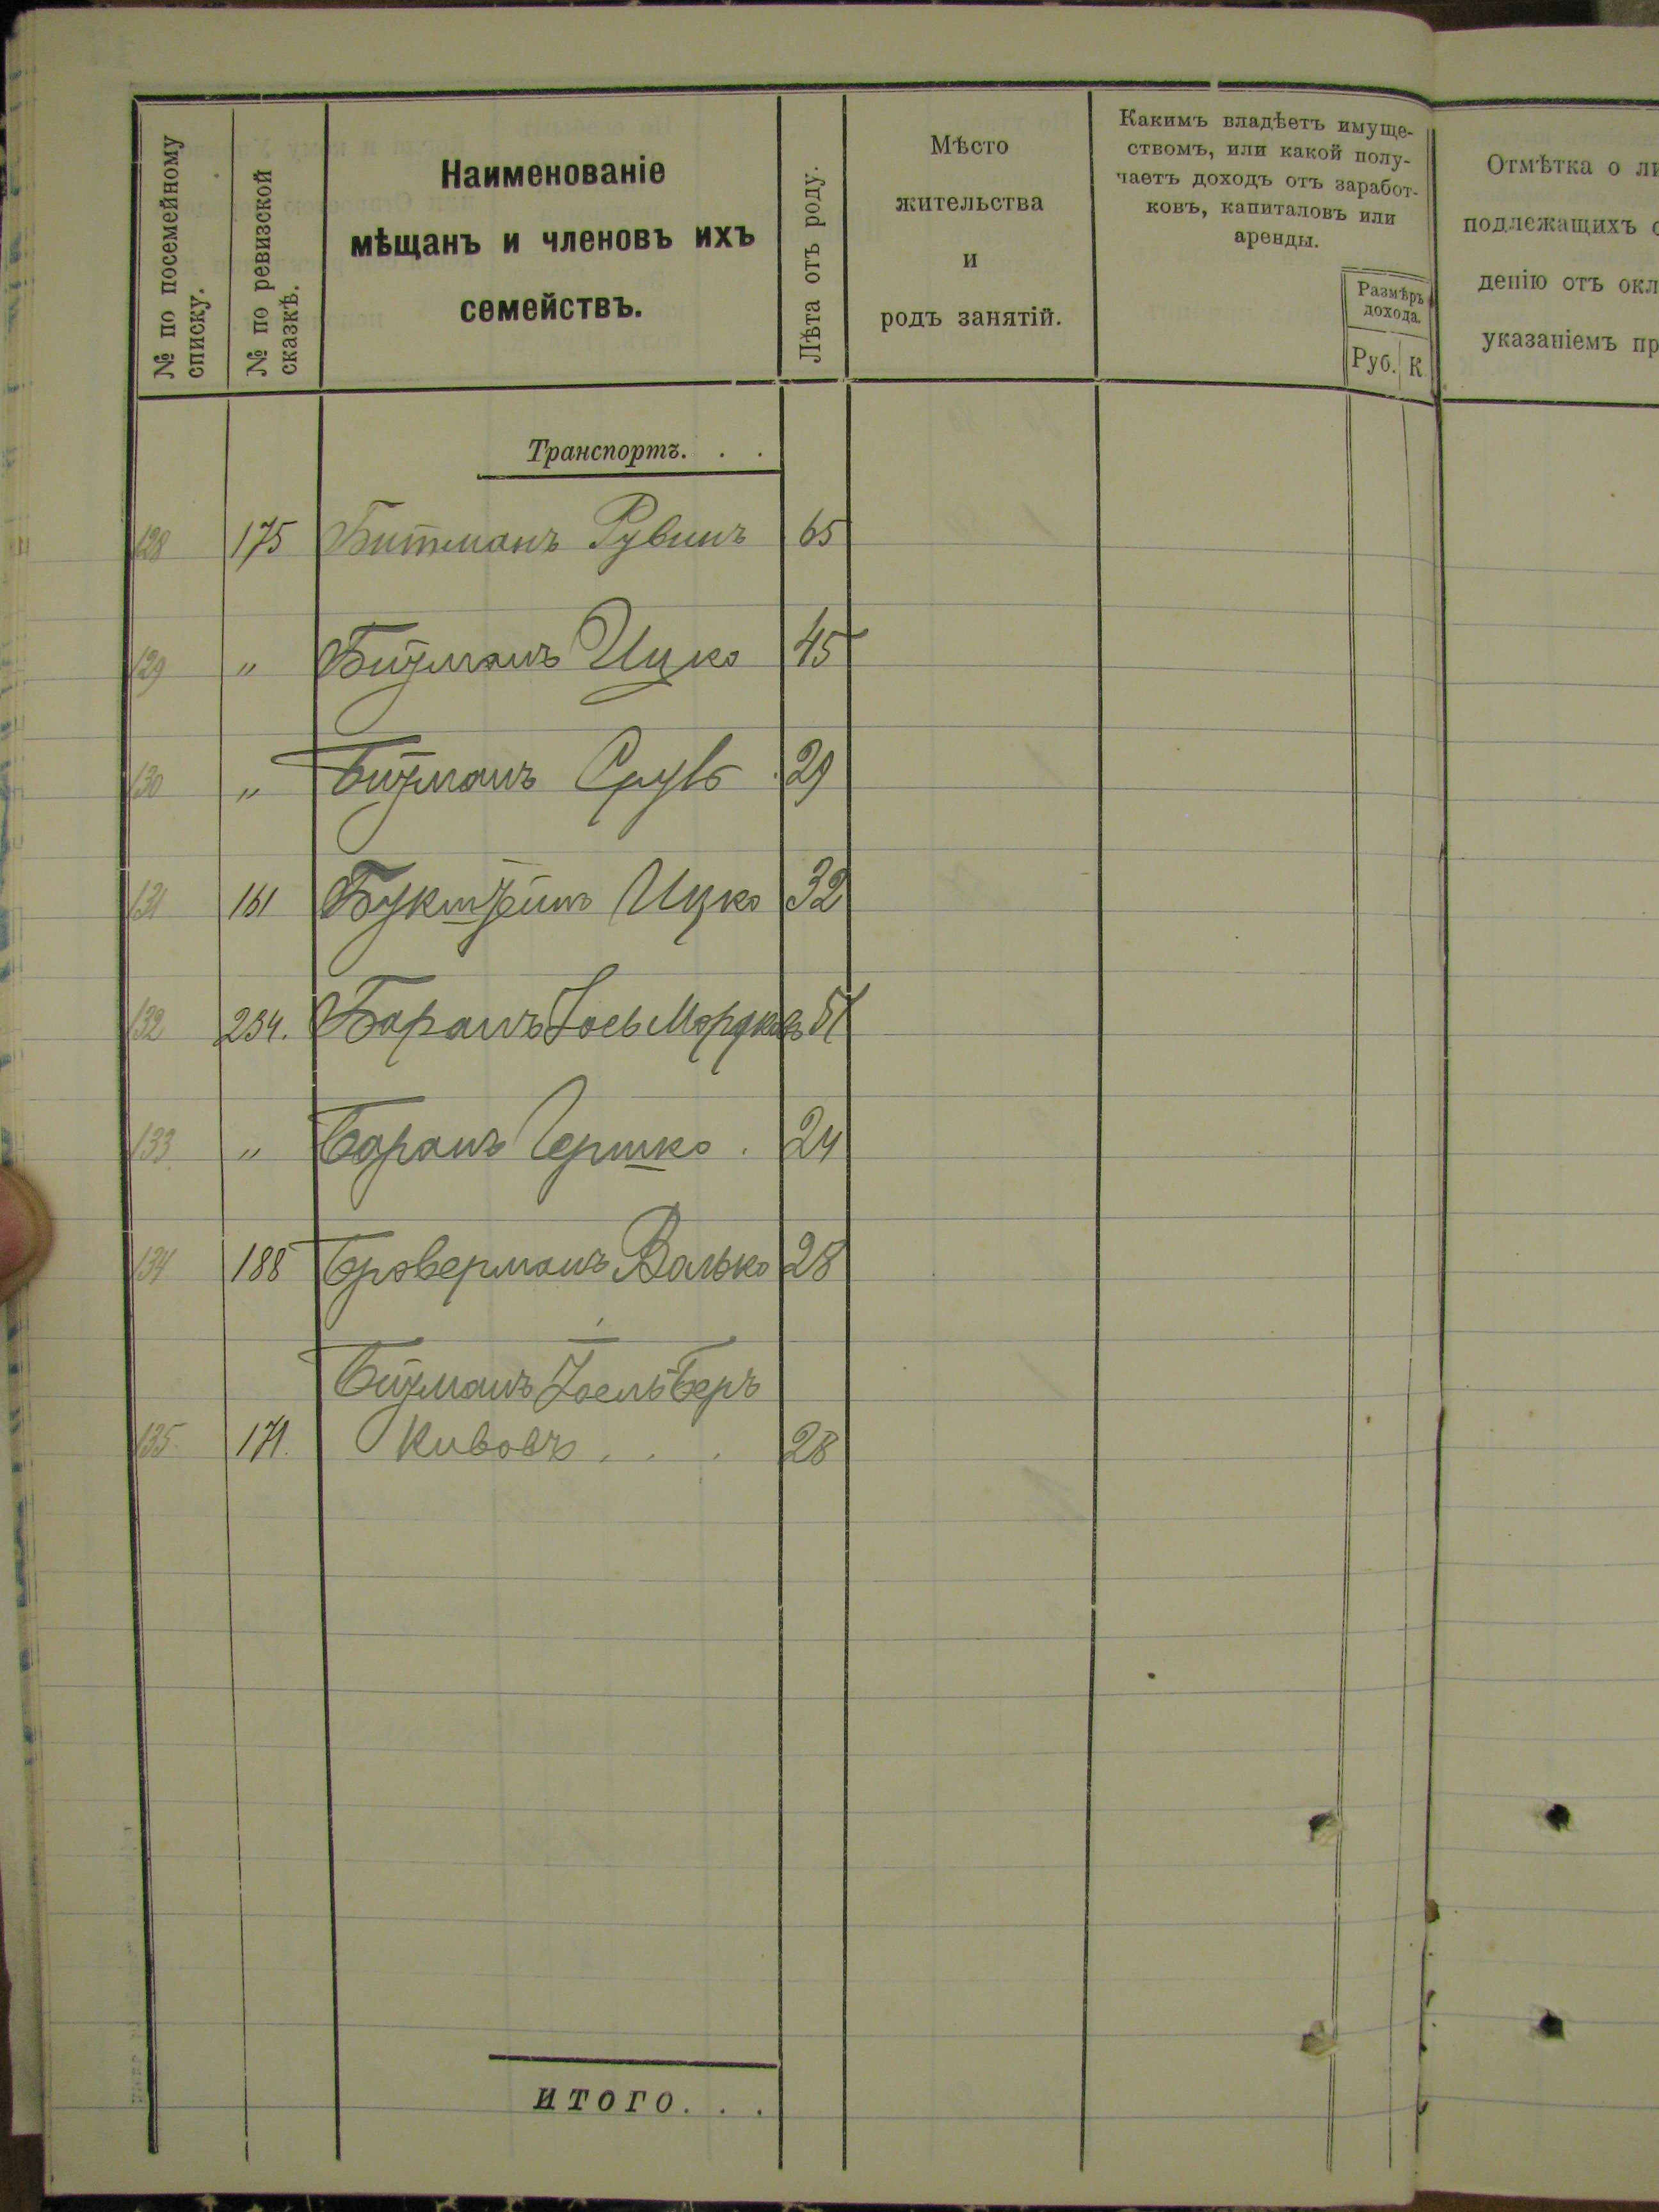 № по посемейному
списку.
№ по ревизской
сказкѣ.
Наименованіе
мѣщанъ и членовъ ихъ
семействъ.
Лѣта отъ роду.
Мѣсто
жительства
и
родъ занятій.
Какимъ владѣетъ имуще-
ствомъ, или какой полу-
чаетъ доходъ отъ заработ-
ковъ, капиталовъ или
аренды.
Размѣръ
дохода.
Руб. К
Отмѣтка о ли
подлежащихъ о
денію отъ окл
указаніемъ пр
Транспортъ. . .
128 175 Битманъ Рувинъ 65
129 " Битманъ Ицко 45
130 " Битманъ Сруль 29
131 161 Букштейнъ Ицко 32
132 234. Баранъ Іось Мордковъ 51
133 " Баранъ Гершко . 24
134 188 Броверманъ Волько 28
Битманъ Іоель Беръ
135. 171. Кивовъ . . . 28
итого. . .